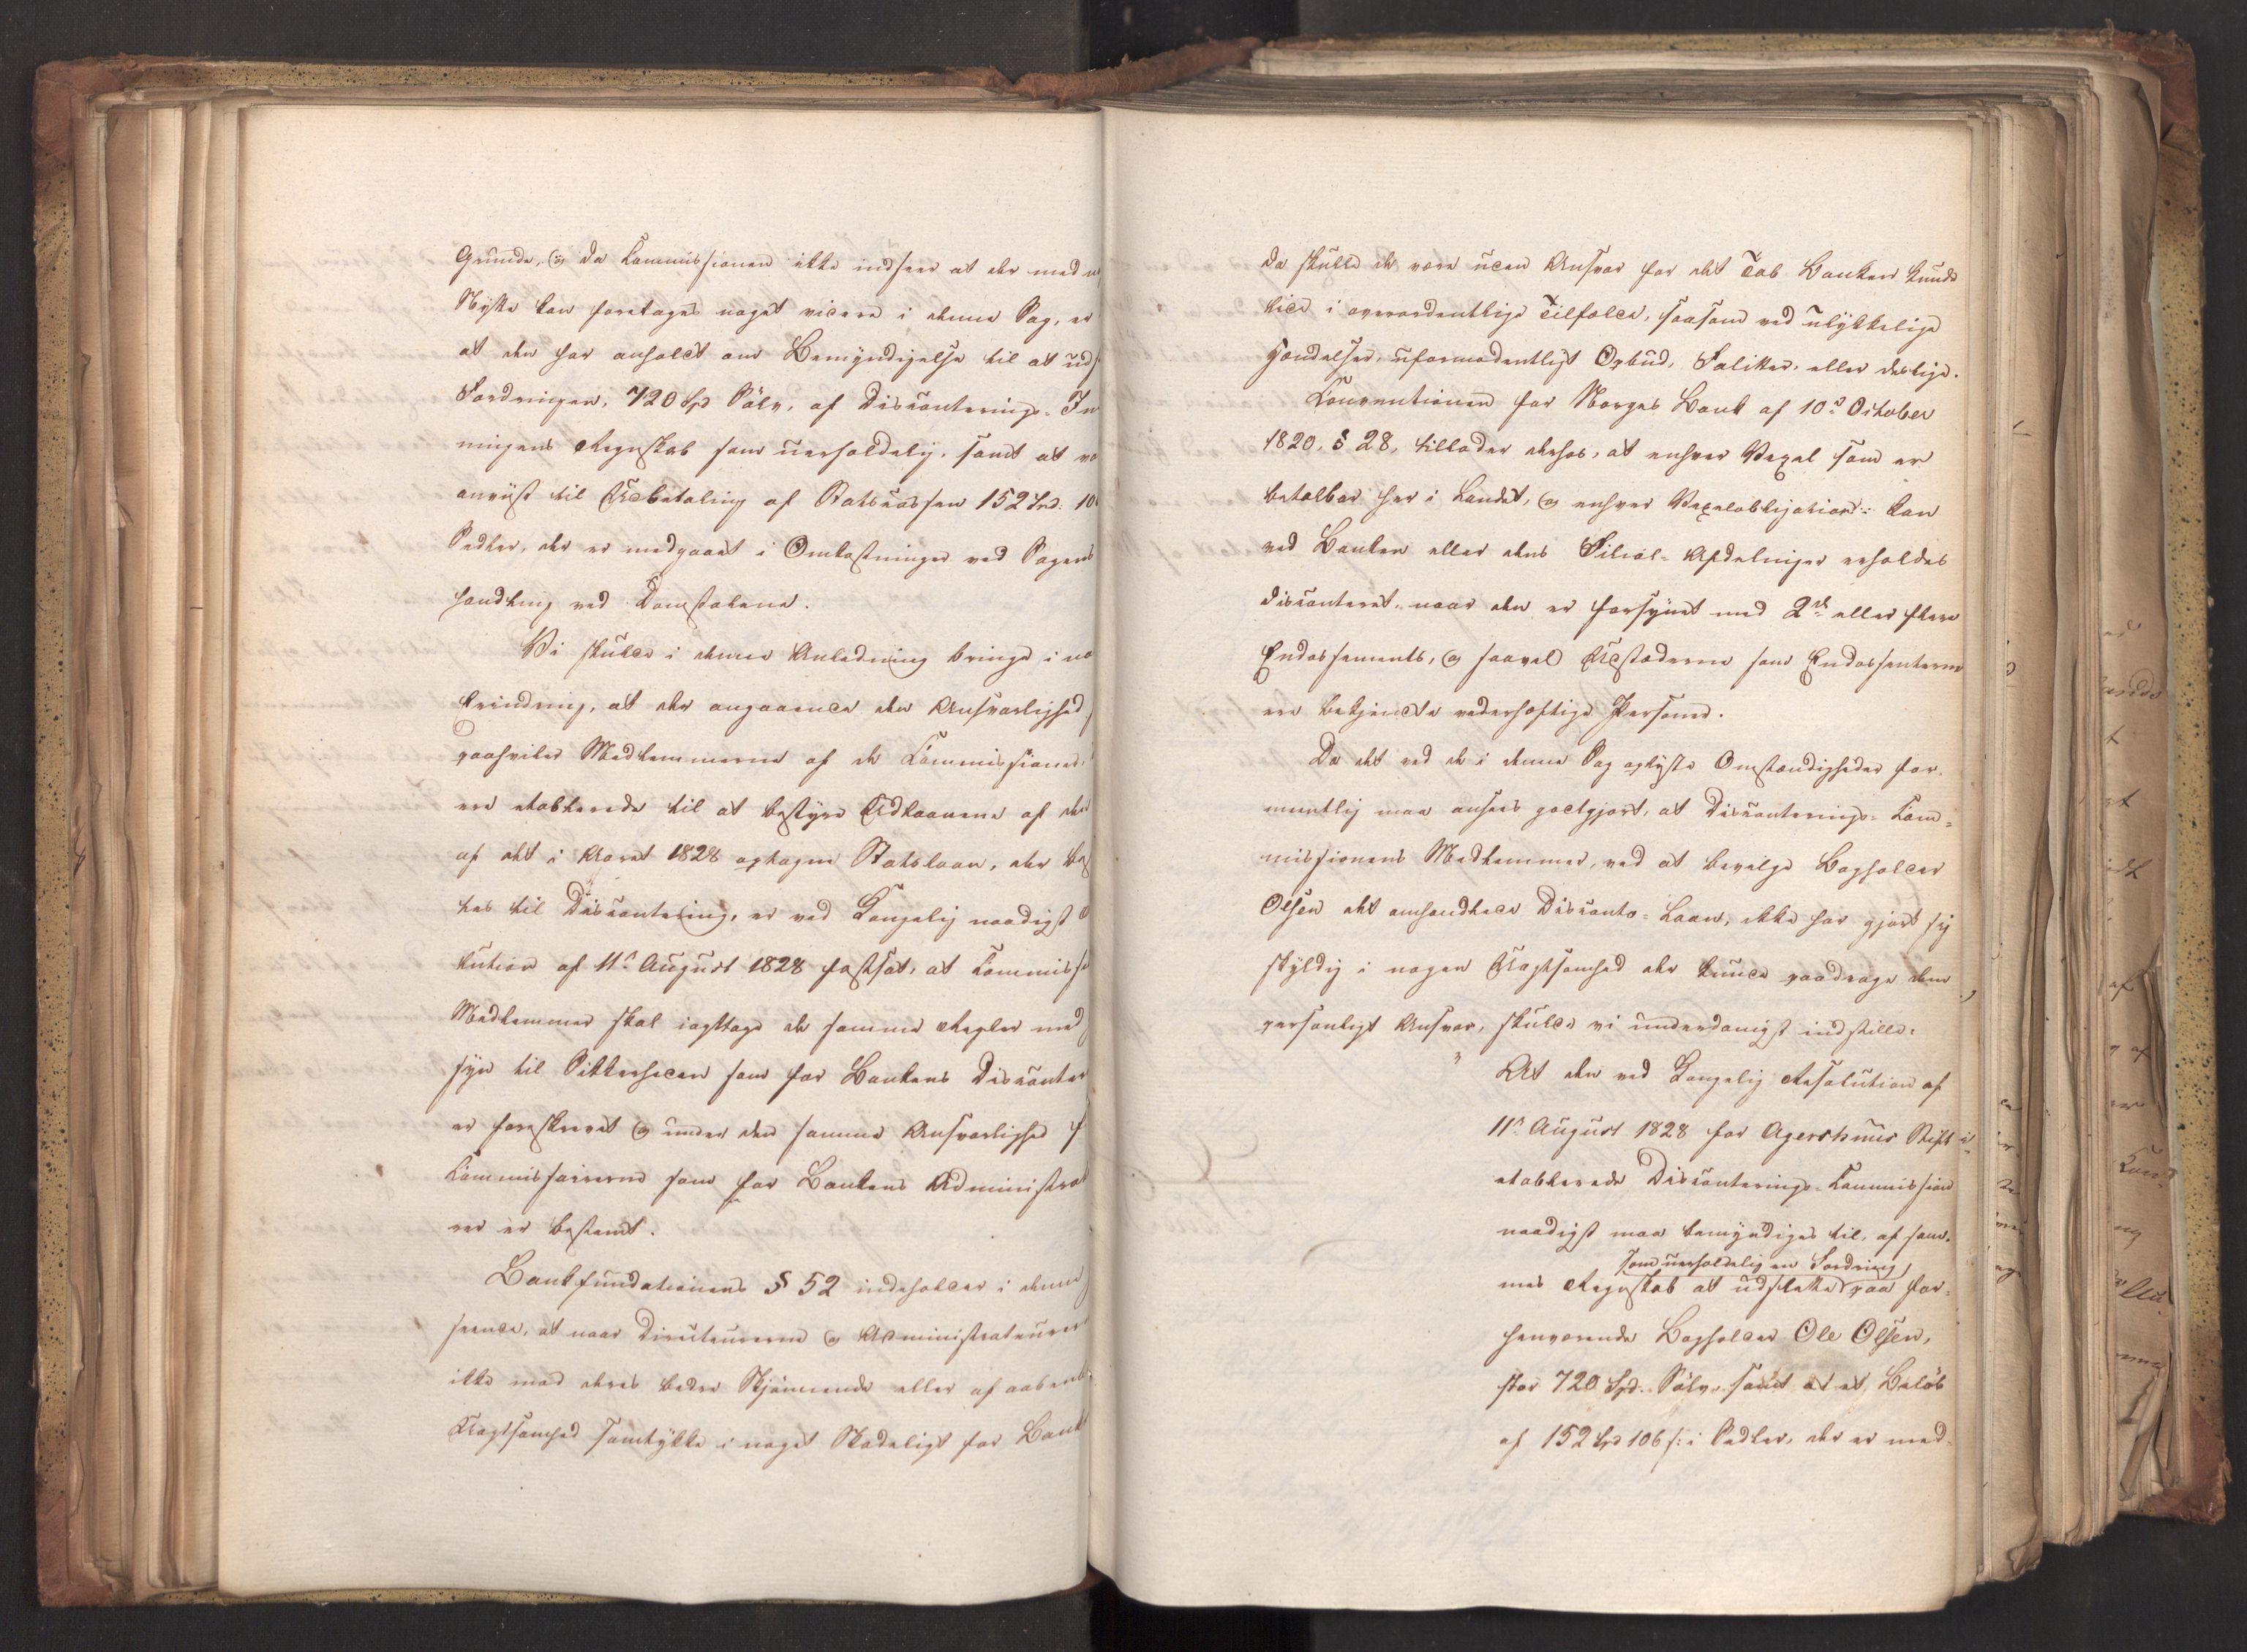 Grunde, og da Commissionen ikke indseer at der med
Nytte kan foretages noget videre i denne Sag, er
at den har anholdt om Bemyndigelse til at uds
Fordringen, 720 Spd Sølv, af Disconterings-In
ningens Regnskab som uerholdelig, samt at
anviist til Udbetaling af Statscassen 152 Spd: 10
Sedler, der er medgaaet i Omkostninger ved Sagens
handling ved Domstolene.
Vi skulde i denne Anledning bringe i
Erindring, at der angaaende den Ansvarlighed
paahviler Medlemmerne af de Commissioner
ere etablerede til at bestyre Udlaanene af den
af det i Aaret 1828 optagne Statslaan, der
tes til Discontering, er ved Kongelig naadigst
lution af 11te August 1828 fastsat, at Commiss
Medlemmer skal iagttage de samme Regler med
syn til Sikkerheden som for Bankens Disconter
er foreskrevet og under den samme Ansvarlighed f
Commissairerne som for Bankens Administrat
rer er bestemt.
Bankfundationens § 52 indeholder i denne
seende, at naar Directeurerne og Administrateurerne
ikke mod deres bedre Skjønnende eller af aabenb
Uagtsomhed samtykke i noget Skadeligt for Bank
da skulle de være uden Ansvar for det Tab Banken kunde
lide i overordentlige Tilfælde, saasom ved ulykkelige
Hændelser, uformodentligt Opbud, Falitter, eller deslige.
Conventionen for Norges Bank af 10de October
1820, § 28, tillader derhos, at enhver Vexel som er
betalbar her i Landet, og enhver Vexelobligation kan
ved Banken eller dens Filial-Afdelinger erholdes
disconteret, naar den er forsynet med 2de eller flere
Endossements, og saavel Udstederne som Endossenterne
ere bekjendte vederhæftige Personer.
Da det ved de i denne Sag oplyste Omstændigheder for,
mentlig maa ansees godtgjort, at Disconterings-Com=
missionens Medlemmer, ved at bevilge Bogholder
Olsen det omhandlede Disconto-Laan, ikke har gjort sig
skyldig i nogen Uagtsomhed der kunde paadrage dem
personligt Ansvar, skulde vi underdanigst indstille:
" At den ved Kongelig Resolution af
11te August 1828 for Agershuus Stift
etablerede Disconterings-Commission
naadigst maa bemyndiges til, af sam.
som uerholdelig en Fordring
mes Regnskab at udslette paa for=
henværende Bogholder Ole Olsen,
stor 720 Spd. Sølv, samt at et Beløb
af 152 Spd 106 s: i Sedler, der er med